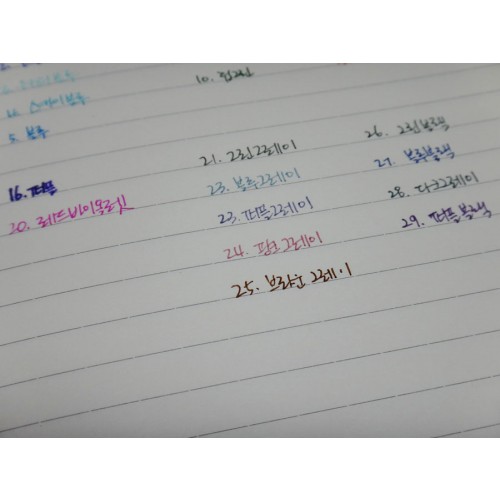 4. 스카이블루
5. 블루
16. 퍼플
20. 레드바이올렛
10.
21. 그린그레이
23. 블루그레이
23. 퍼플그레이
24. 핑크그레이
25. 브라운그레이
26. 그린블랙
27. 블루블랙
28. 다크그레이
29. 퍼플블랙